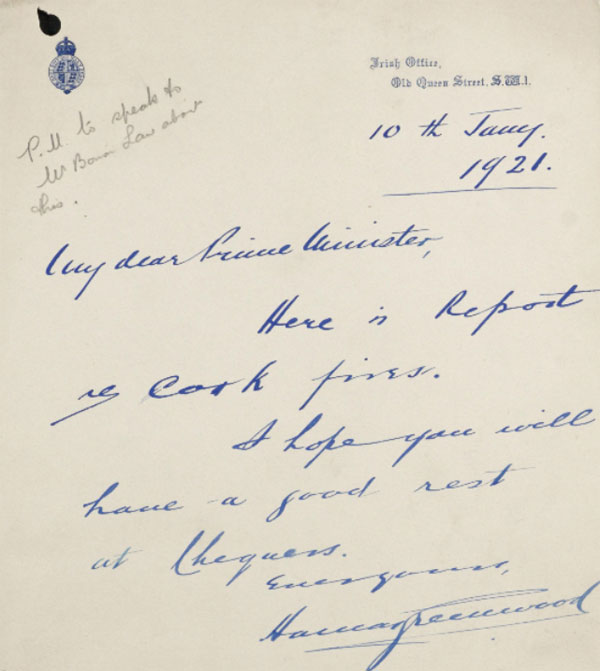 Irish Office,
Old Queen Street, S.W.1.
P.M. to speak to
Mr Bonar Law about
this.
10th Jany.
1921.
My dear Prime Minister,
Here is Report
re Cork fires.
I hope you will
have a good rest
at Chequers.
Ever yours,
Hamar Greenwood